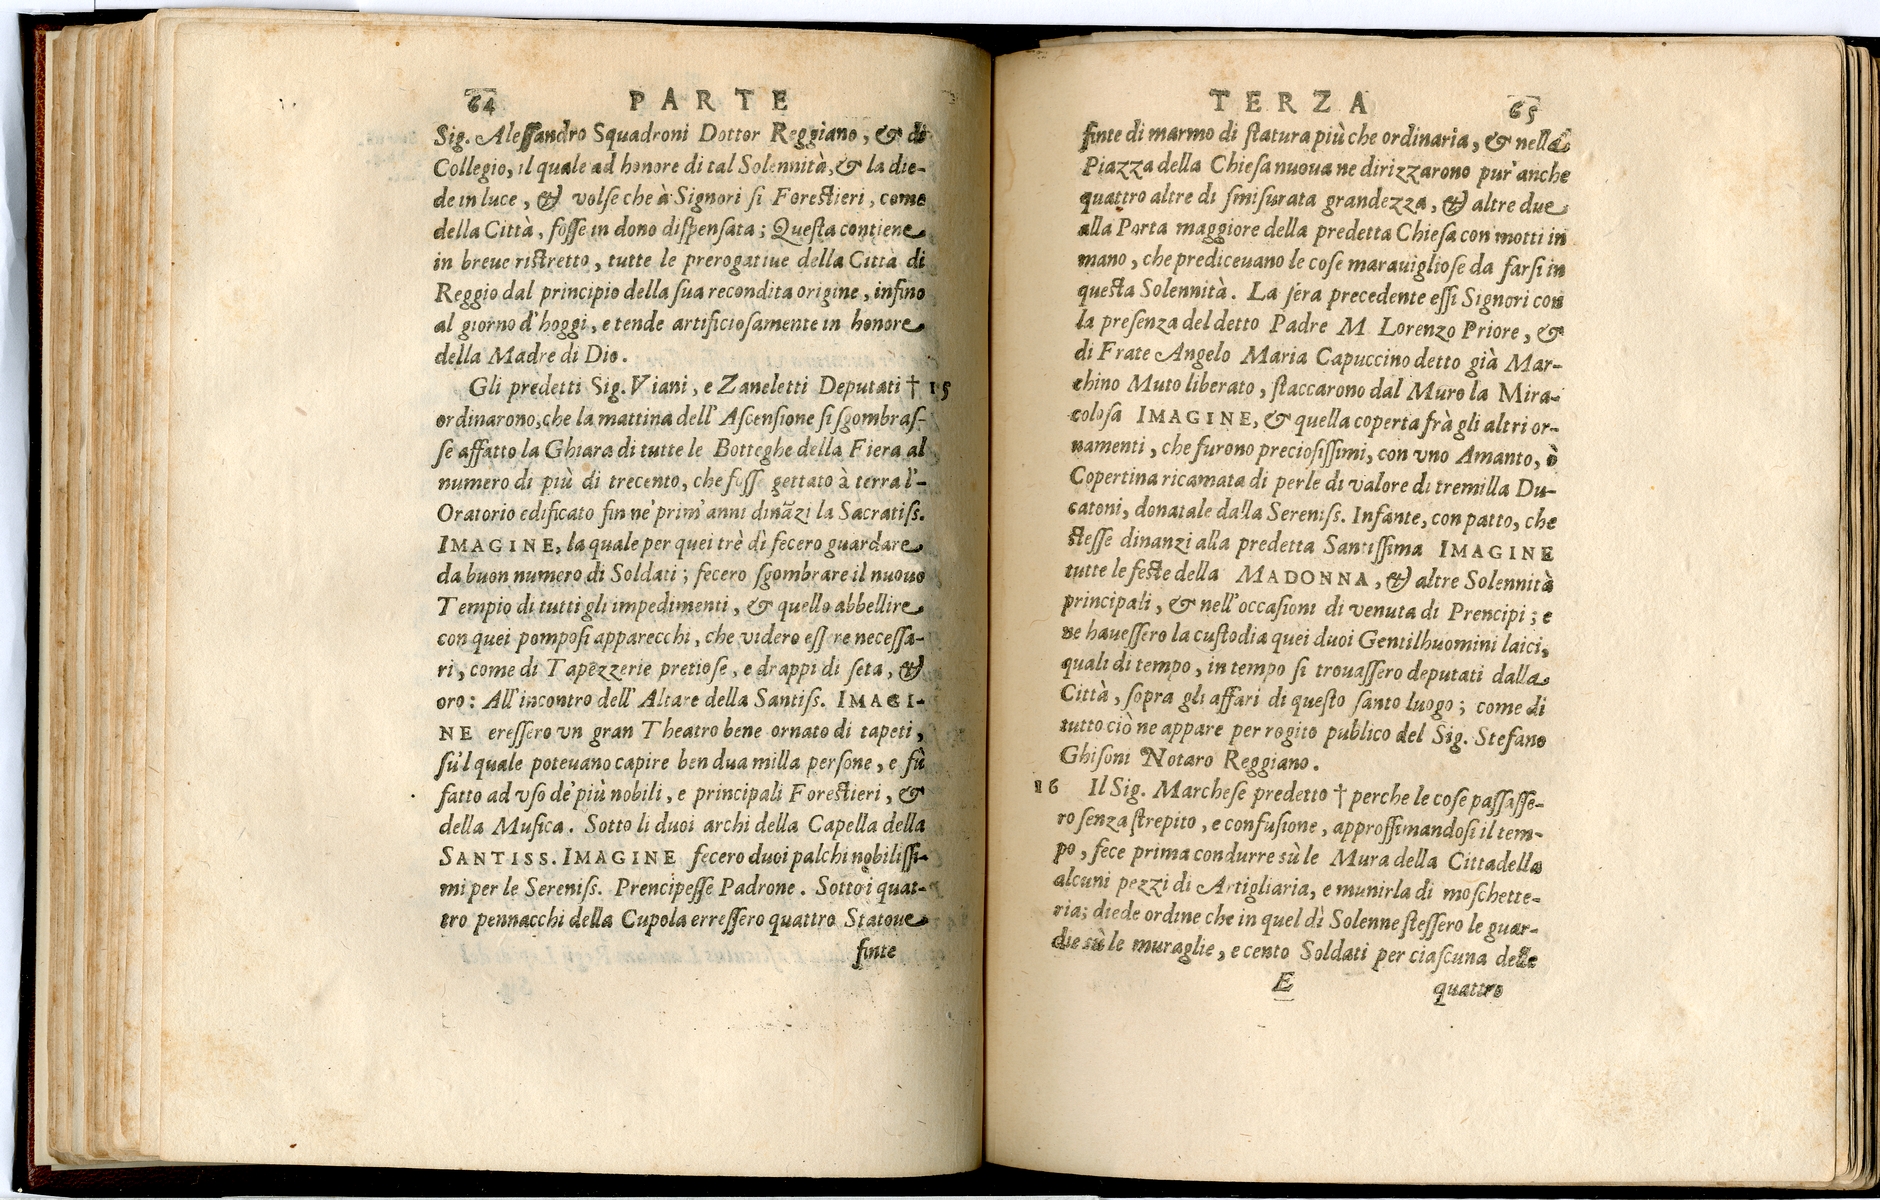 64 PARTE
Sig. Alessandro Squadroni Dottor Reggiano, & di
Collegio, il quale ad honore di tal Solennità, & la die-
de in luce, & volse che à Signori si Forestieri, come
della Città, fosse in dono dispensata; Questa contiene
in breue ristretto, tutte le prerogatiue della Città di
Reggio dal principio della sua recondita origine, infino
al giorno d'hoggi, e tende artificiosamente in honore
della Madre di Dio.
Gli predetti Sig. Viani, e Zaneletti Deputati † 15
ordinarono, che la mattina dell' Ascensione si sgombras-
se affatto la Ghiara di tutte le Botteghe della Fiera al
numero di più di trecento, che fosse gettato à terra l'-
Oratorio edificato fin ne' prim' anni dināzi la Sacratiss.
IMAGINE, la quale per quei trè dì fecero guardare
da buon numero di Soldati; fecero sgombrare il nuouo
Tempio di tutti gli impedimenti, & quello abbellire
con quei pomposi apparecchi, che videro essere necessa-
ri, come di Tapēzzerie pretiose, e drappi di seta, &
oro: All' incontro dell' Altare della Santiss. IMAGI-
NE eressero vn gran Theatro bene ornato di tapeti,
sù'l quale poteuano capire ben dua milla persone, e fù
fatto ad vso de' più nobili, e principali Forestieri, &
della Musica. Sotto li duoi archi della Capella della
SANTISS. IMAGINE fecero duoi palchi nobilissi-
mi per le Sereniss. Prencipesse Padrone. Sotto i quat-
tro pennacchi della Cupola erressero quattro Statoue
finte
TERZA 65
finte di marmo di statura più che ordinaria, & nella
Piazza della Chiesa nuoua ne dirizzarono pur' anche
quattro altre di smisurata grandezza, & altre due
alla Porta maggiore della predetta Chiesa con motti in
mano, che prediceuano le cose marauigliose da farsi in
questa Solennità. La sera precedente essi Signori con
la presenza del detto Padre M. Lorenzo Priore, &
di Frate Angelo Maria Capuccino detto già Mar-
chino Muto liberato, staccarono dal Muro la Mira-
colosa IMAGINE, & quella coperta frà gli altri or-
namenti, che furono preciosissimi, con vno Amanto, ò
Copertina ricamata di perle di valore di tremilla Du-
catoni, donatale dalla Sereniss. Infante, con patto, che
stesse dinanzi alla predetta Santissima IMAGINE
tutte le feste della MADONNA, & altre Solennità
principali, & nell' occasioni di venuta di Prencipi; e
ne hauessero la custodia quei duoi Gentilhuomini laici,
quali di tempo, in tempo si trouassero deputati dalla
Città, sopra gli affari di questo santo luogo; come di
tutto ciò ne appare per rogito publico del Sig. Stefano
Ghisoni Notaro Reggiano.
16 Il Sig. Marchese predetto † perche le cose passasse-
ro senza strepito, e confusione, approssimandosi il tem-
po, fece prima condurre sù le Mura della Cittadella
alcuni pezzi di Artigliaria, e munirla di moschette-
ria; diede ordine che in quel dì Solenne stessero le guar-
die sù le muraglie, e cento Soldati per ciascuna delle
E quattro